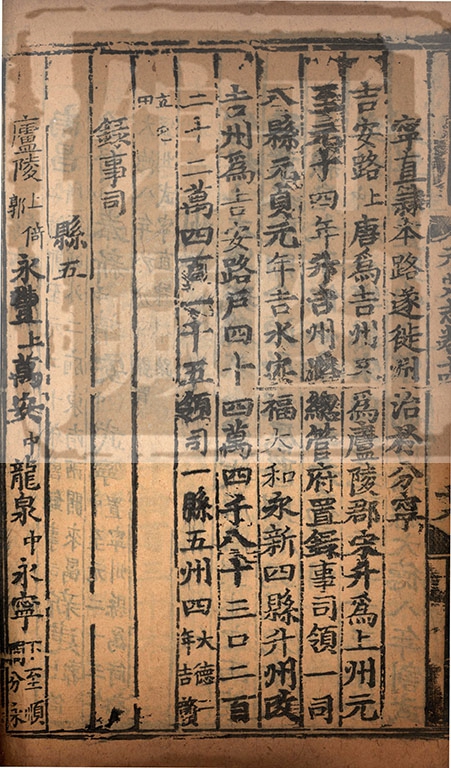 寧直隸本路遂徙州治於分寧
吉安路上唐爲吉州又爲廬陵郡宋升爲上州元
至元十四年升吉州路總管府置錄事司領一司
八縣元貞元年吉水安福太和永新四縣升州改
吉州爲吉安路户四十四萬四千八十三口二百
二十二萬四百一十五領司一縣五州四大德二年吉贛
立屯田
錄事司
縣五
廬陵上倚郭永豐上萬安中龍泉中永寧下至順間分永